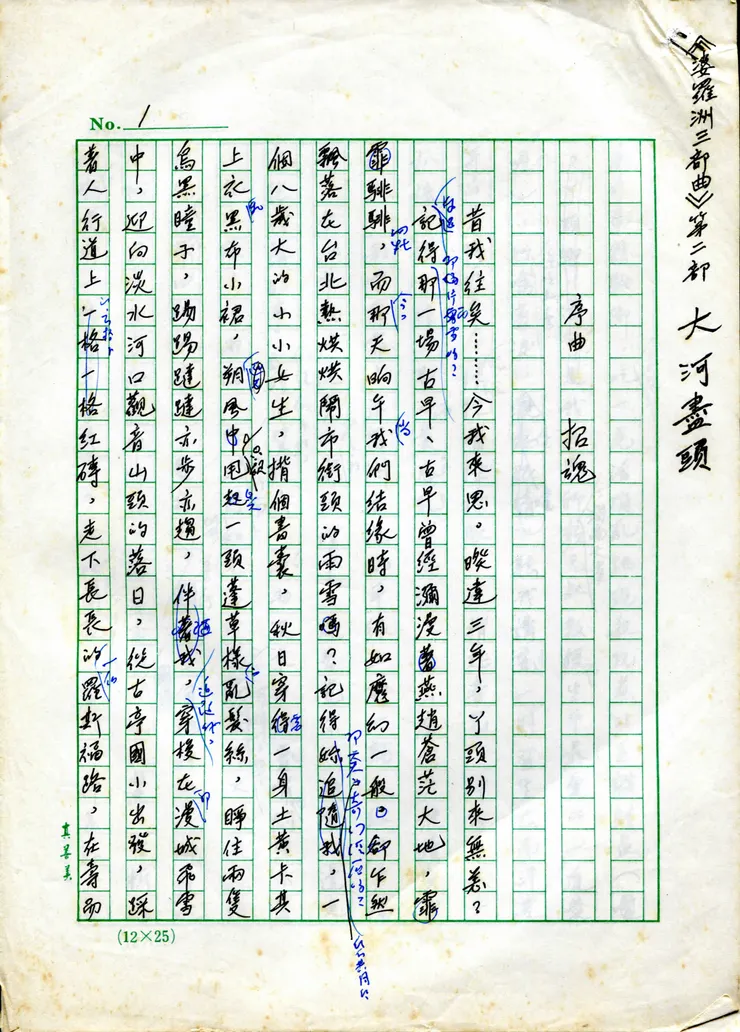 《婆羅洲三部曲》第二部 大河盡頭
No. 1
序曲 招魂
昔我往矣………今我來思。暌違三年,丫頭別來無恙?
記得那一場古早、古早曾經瀰漫著燕趙蒼茫大地,霏
霏騑騑,而那天晌午我們結緣時,有如魔幻一般卻乍然
飄落在台北熱烘烘鬧市街頭的雨雪嗎?記得妳追隨我,一
個八歲大的小小女生,揹個書囊,秋日穿得一身土黃卡其
上衣黑布小裙,朔風中甩起一頭蓬草樣亂髮絲,睜住兩隻
烏黑瞳子,踢踢躂躂亦步亦趨,伴著我,穿梭在漫城飛雪
中,迎向淡水河口觀音山頭的落日,從古亭國小出發,踩
著人行道上一格一格紅磚,走下長長的羅斯福路,在壽而
(12×25)
真善美